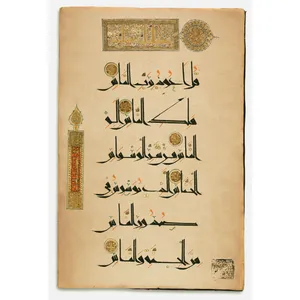 قل اعوذ برب الناس
ملك الناس اله
الناس من شر الوسواس
الخناس الذي يوسوس في
صدور الناس
من الجنة والناس